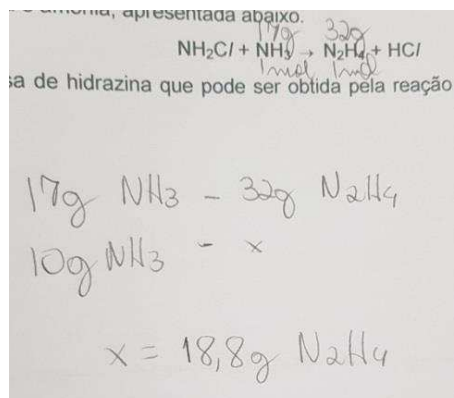 e amônia, apresentada abaixo.
17g 32g
NH2Cl + NH3 → N2H4 + HCl
1mol 1mol
sa de hidrazina que pode ser obtida pela reação
17g NH3 - 32g N2H4
10g NH3 - x
x = 18,8g N2H4